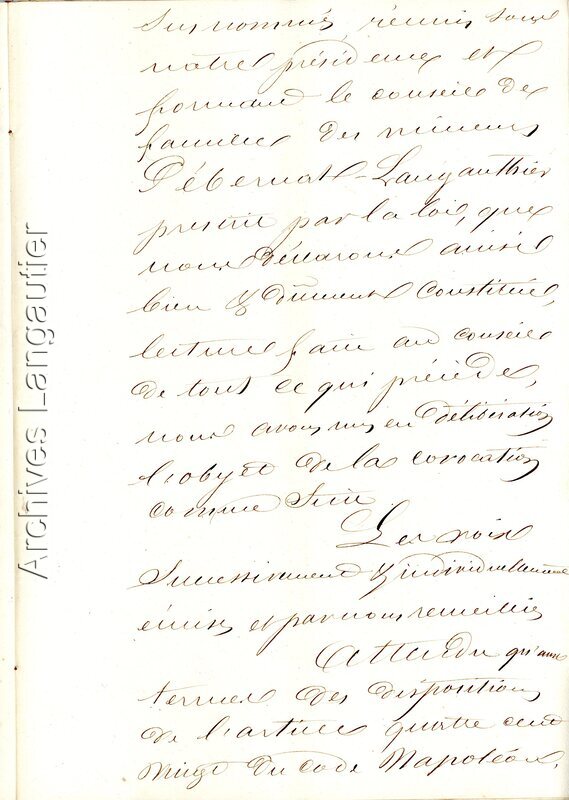 Susnommés, réunis sous
notre présidence et
formant le conseil de
famille des mineurs
Pébernat-Langauthier
prescrit par la loi, que
nous déclarons ainsi
bien & dûment constitué,
lecture faite au conseil
de tout ce qui précède,
nous avons mis en délibération
l'objet de la convocation
comme suit
Les voix
Successivement & individuellement
émises et par nous recueillies
Attendu qu'aux
termes des dispositions
de l'article quatre cent
vingt du code Napoléon,
Archives Langautier